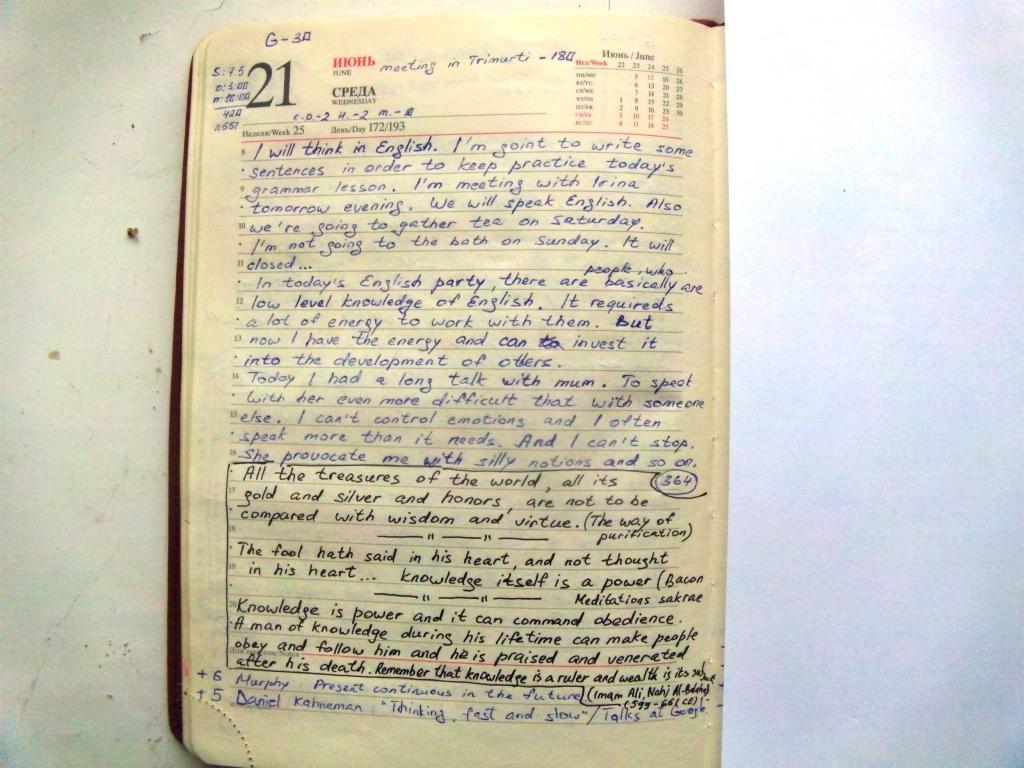 G-3Д
5:7.5
21
ИЮНЬ
JUNE
meeting in Trimurti - 18Д
СРЕДА
WEDNESDAY
c.D.-2 H.-2 m.-
Неделя/Week 25 День/Day 172/193
Июнь / June
Нед/Week 22 23 24 25 26
ПН/MO 5 12 19 26
ВТ/TU 6 13 20 27
СР/WE 7 14 21 28
ЧТ/TH 1 8 15 22 29
ПТ/FR 2 9 16 23 30
СБ/SA 3 10 17 24
ВС/SU 4 11 18 25
8 I will think in English. I'm goint to write some
sentences in order to keep practice today's
9 grammar lesson. I'm meeting with Irina
tomorrow evening. We will speak English. Also
10 we're going to gather tea on Saturday.
I'm not going to the bath on Sunday. It will
11 closed...
people, who
In today's English party, there are basically are
12 low level knowledge of English. It requireds
a lot of energy to work with them. But
13 now I have the energy and can to invest it
into the development of others.
14 Today I had a long talk with mum. To speak
with her even more difficult that with someone
15 else. I can't control emotions and I often
speak more than it needs. And I can't stop.
16 She provocate me with silly notions and so on.
All the treasures of the world, all its (364)
17 gold and silver and honors, are not to be
compared with wisdom and virtue. (The way of
18 purification)
The fool hath said in his heart, and not thought
19 in his heart... Knowledge itself is a power (Bacon
Meditations sakrae
20 Knowledge is power and it can command obedience.
A man of knowledge during his lifetime can make people
obey and follow him and he is praised and venerated
after his death. Remember that knowledge is a ruler and wealth is its
+6 Murphy Present continuous in the future (Imam Ali, Nahj Al-
+5 Daniel Kahneman "Thinking, fast and slow" / Talks at Google